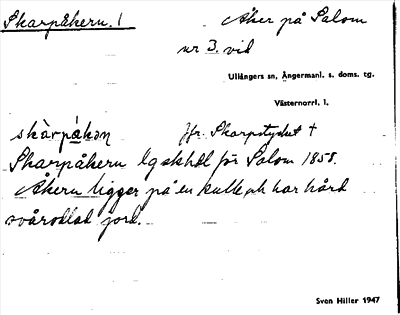 Skarpåkern. 1
Åker på Salom
nr 3. vid
Ullångers sn, Ångermanl. s. doms. tg.
Västernorrl. l.
skàrpákən Jfr. Skarpstycket +
Skarpåkern lgskhdl för Salom 1858.
Åkern ligger på en kulle och har hård
svårodlad jord.
Sven Hiller 1947